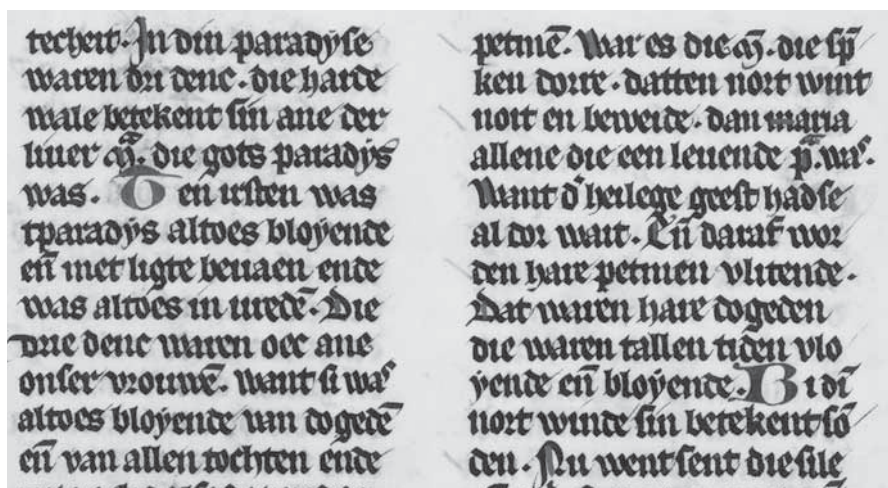 techeit. In din paradyse
waren dri denc. die harde
wale betekent sin ane der
liuer ɱᵃ. die gots paradÿs
was. Ten irsten was
tparadÿs altoes bloÿende
en̄ met ligte beuaen ende
was altoes in uredē. Die
drie denc waren oec ane
onser vrouwē. want si wa⁹
altoes bloÿende van dogedē
en̄ van allen tochten ende
petmē. War es die ɱ̄. die sp̄
ken dorre. datten nort wint
noit en beweide. dan maria
allene die een leuende p̄ᵃ. wa⁹.
Want d' heilege geest hadse
al dor wait. En̄ daraf wor
den hare petmen vlitende.
Dat waren hare dogeden
die waren tallen tiden vlo
ÿende en̄ bloÿende. Bi dī
nort winde sin betekent sō
den. Nu went sent die sile